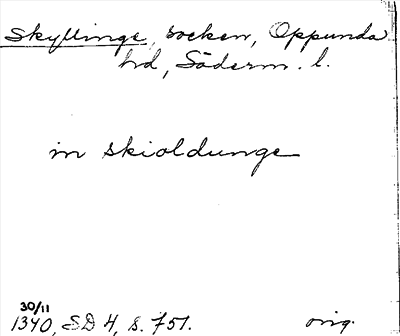 Skyllinge, socken, Oppunda
hd, Söderm. l.
in skioldunge
30/11
1340, SD 4, s. 751.
orig.